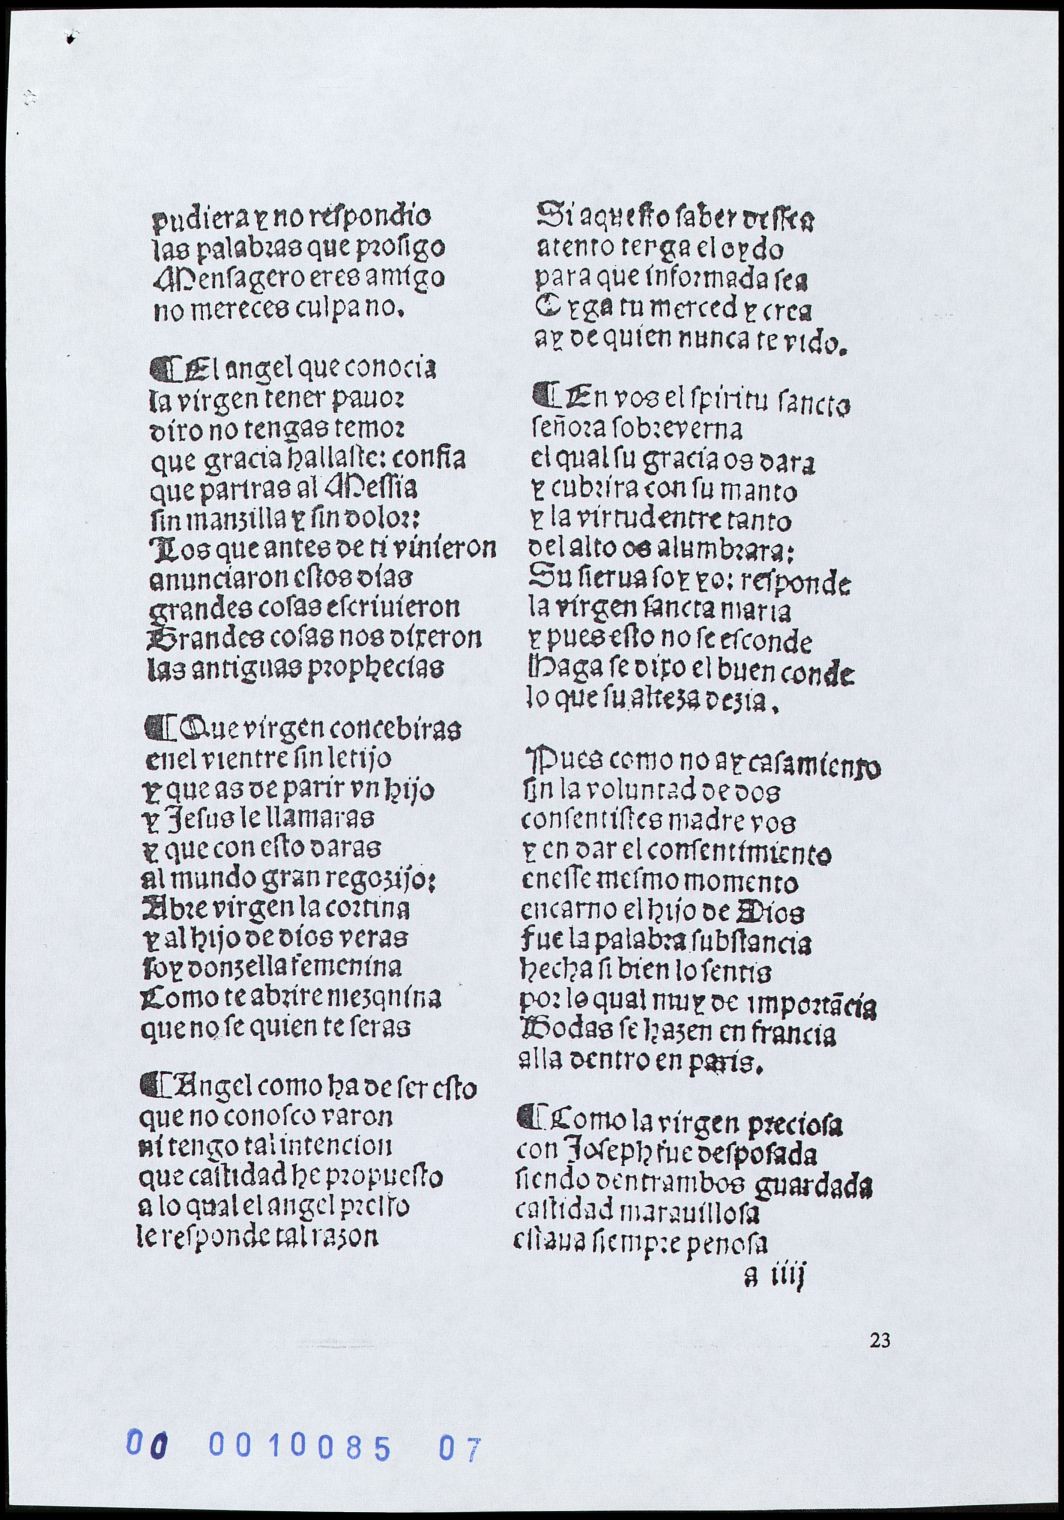 pudiera y no respondio
las palabras que prosigo
Mensagero eres amigo
no mereces culpa no.
¶ El angel que conocia
la virgen tener pauor
dixo no tengas temor
que gracia hallaste: confia
que pariras al Messia
sin manzilla y sin dolor:
Los que antes de ti vinieron
anunciaron estos dias
grandes cosas escriuieron
Grandes cosas nos dixeron
las antiguas prophecias
¶ Que virgen concebiras
enel vientre sin letijo
y que as de parir vn hijo
y Jesus le llamaras
y que con esto daras
al mundo gran regozijo:
Abre virgen la cortina
y al hijo de dios veras
soy donzella femenina
Como te abrire mezquina
que no se quien te seras
¶ Angel como ha de ser esto
que no conosco varon
ni tengo tal intencion
que castidad he propuesto
a lo qual el angel presto
le responde tal razon
Si aquesto saber dessea
atento tenga el oydo
para que informada sea
Oyga tu merced y crea
ay de quien nunca te vido.
¶ En vos el spiritu sancto
señora sobreverna
el qual su gracia os dara
y cubrira con su manto
y la virtud entre tanto
del alto os alumbrara:
Su sierua soy yo: responde
la virgen sancta maria
y pues esto no se esconde
Haga se dixo el buen conde
lo que su alteza dezia.
Pues como no ay casamiento
sin la voluntad de dos
consentistes madre vos
y en dar el consentimiento
enesse mesmo momento
encarno el hijo de Dios
fue la palabra substancia
hecha si bien lo sentis
por lo qual muy de importãcia
Bodas se hazen en francia
alla dentro en paris.
¶ Como la virgen preciosa
con Joseph fue desposada
siendo dentrambos guardada
castidad marauillosa
estaua siempre penosa
a iiij
23
00 0010085 07